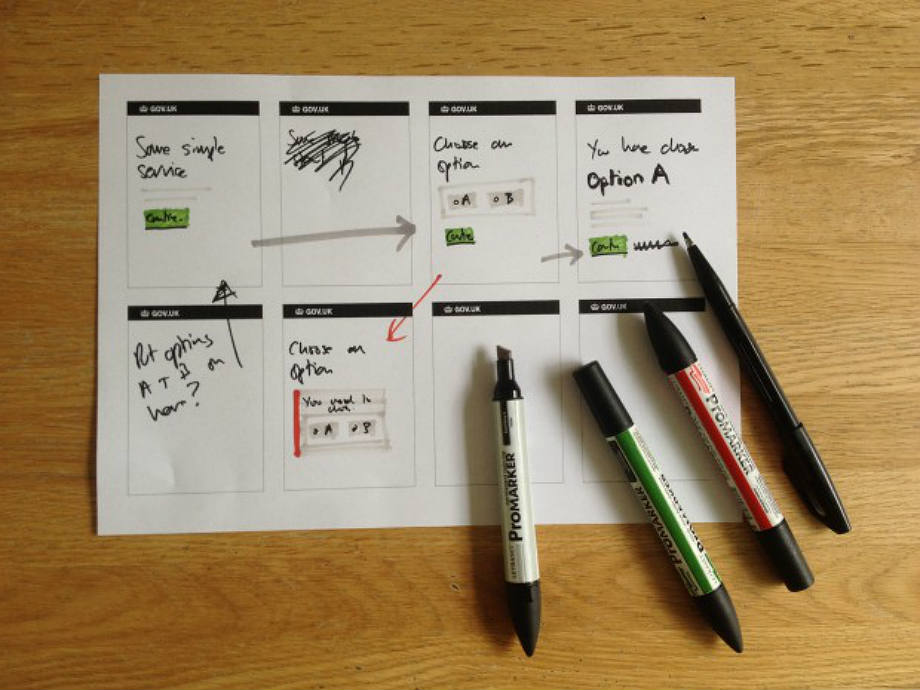 GOV.UK
Some simple
service
GOV.UK
GOV.UK
Choose an
option
A
B
GOV.UK
You have chosen
Option A
GOV.UK
Put options
on
here?
GOV.UK
Choose an
option
You need to
A
B
GOV.UK
GOV.UK
PROMARKER
PROMARKER
PROMARKER